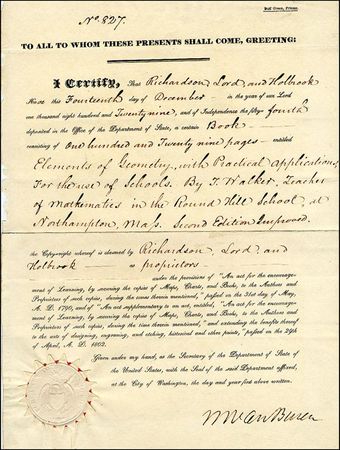 No. 827.
Duff Green, Printer.
TO ALL TO WHOM THESE PRESENTS SHALL COME, GREETING:
I Certify, That Richardson, Lord, and Holbrook
Have this Fourteenth day of December in the year of our Lord
one thousand eight hundred and Twenty nine, and of Independence the fifty fourth
deposited in the Office of the Department of State, a certain Book
consisting of One hundred and Twenty nine pages entitled
Elements of Geometry, with Practical Applications,
For the use of Schools. By T. Walker, Teacher
of Mathematics in the Round Hill School, at
Northampton, Mass. Second Edition Improved.
the Copyright whereof is claimed by Richardson, Lord, and
Holbrook as proprietors
under the provisions of "An act for the encourage-
ment of Learning, by securing the copies of Maps, Charts, and Books, to the Authors and
Proprietors of such copies, during the times therein mentioned," passed on the 31st of May,
A. D. 1790, and of "An act supplementary to an act, entitled, An act for the encourage-
ment of Learning, by securing the copies of Maps, Charts, and Books, to the Authors and
Proprietors of such copies, during the time therein mentioned;" and extending the benefits thereof
to the arts of designing, engraving, and etching, historical and other prints," passed on the 29th
of April, A. D. 1802.
Given under my hand, as the Secretary of the Department of State of
the United States, with the Seal of the said Department affixed,
at the City of Washington, the day and year first above written.
M Van Buren